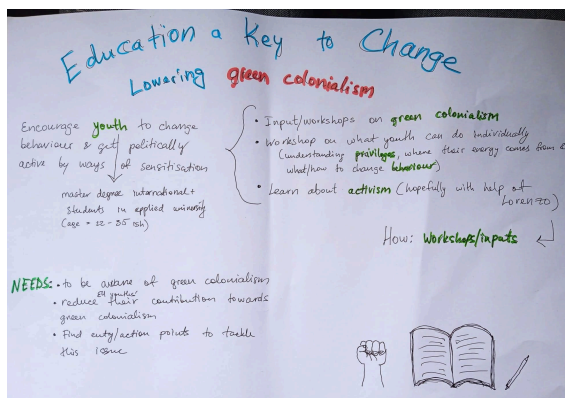 Education a Key to Change
Lowering green colonialism
Encourage youth to change
behaviours & get politically
active by ways of sensitisation
master degree international +
students in applied university
(age = 22-35 ish)
• Input/workshops on green colonialism
• Workshop on what youth can do individually
(understanding privileges, where their energy comes from &
what/how to change behaviour)
• Learn about activism (hopefully with help of
Lorenzo)
How: Workshops/inputs
NEEDS: • to be aware of green colonialism
• reduce their contribution towards
green colonialism
• Find entry/action points to tackle
this issue